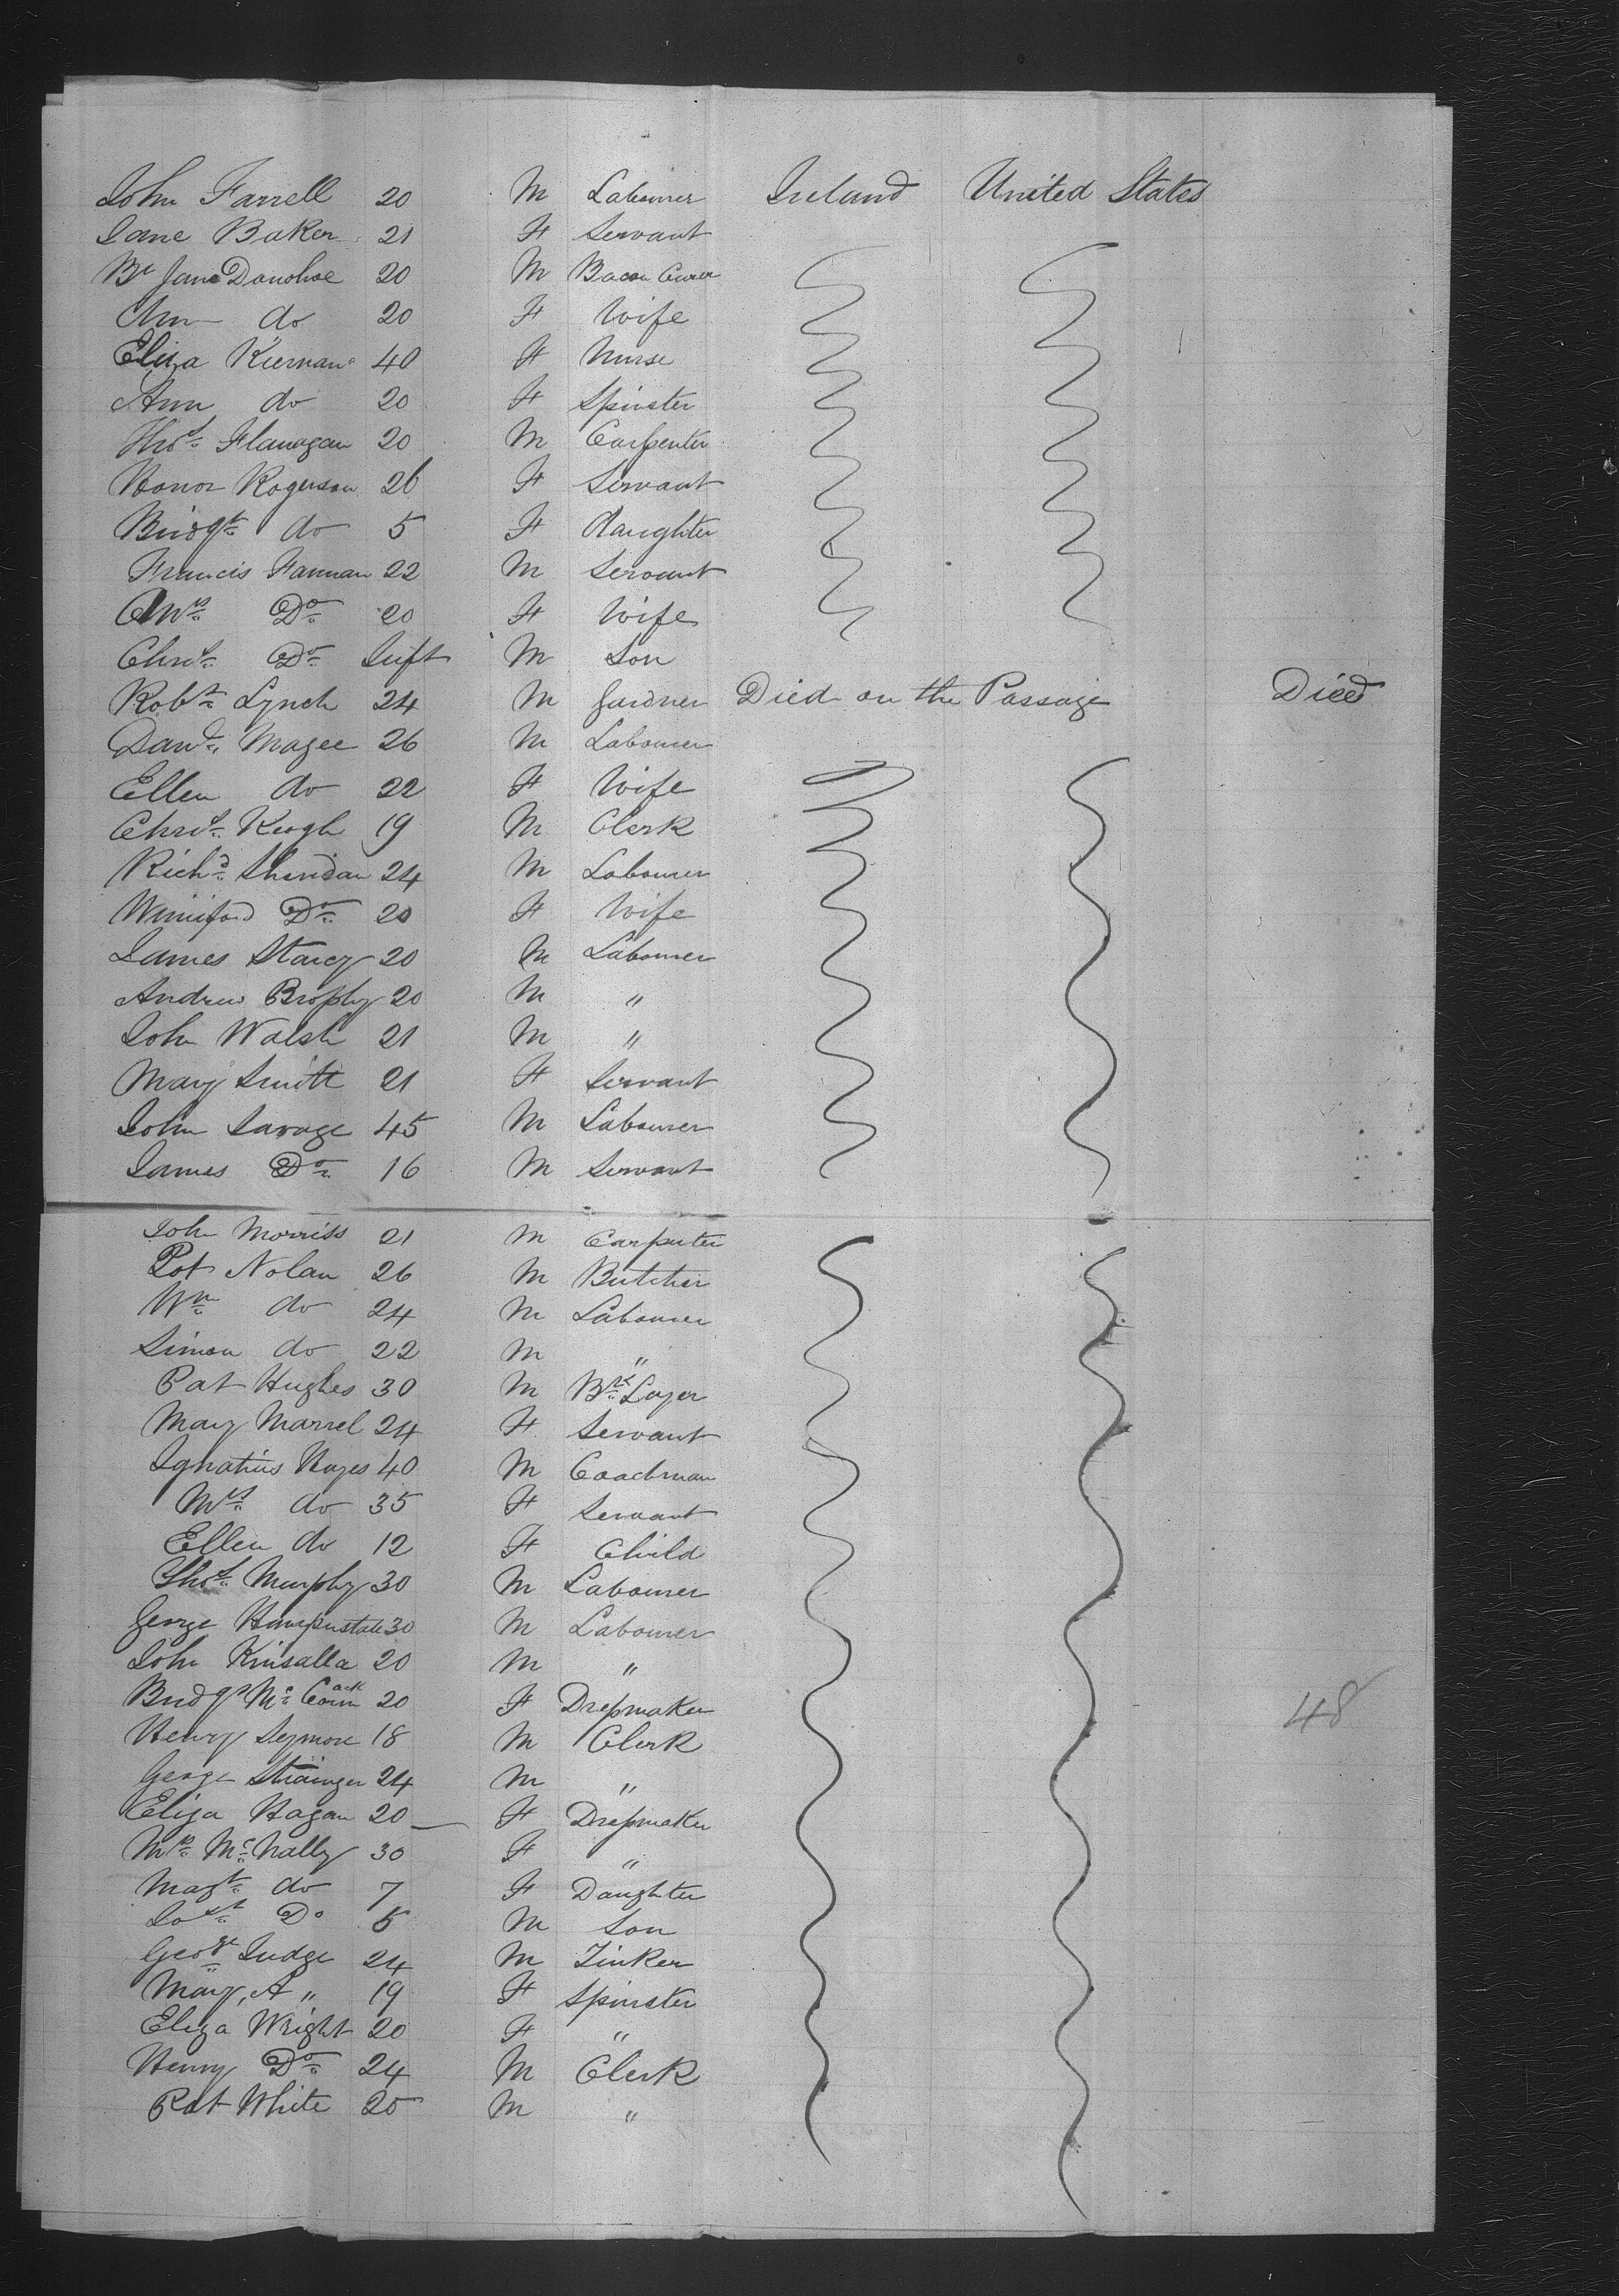 John Farrell 20 M Labourer Ireland United States
Jane Baker 21 F Servant
Jane Donohoe 20 M Bacon Curer
Ann do 20 F Wife
Eliza Kiernan 40 F Nurse
Ann do 20 F Spinster
Thos Flanagan 20 M Carpenter
Honor Rogerson 26 F Servant
Bridgt do 5 F daughter
Francis Fannan 22 M Servant
Mrs Do 20 F Wife
Chrisr Do Inft M Son
Robt Lynch 24 M Gardner Died on the Passage Died
Magee 26 M Labourer
Ellen do 22 F Wife
Keogh 19 M Clerk
Richd Sheridan 24 M Labourer
Winiford Do 20 F Wife
James Starcy 20 M Labourer
Andrew Brophy 20 M "
John Walsh 21 M "
Mary Smith 21 F Servant
John Savage 45 M Labourer
James Do 16 M Servant
John Morriss 21 M Carpenter
Pat Nolan 26 M Butcher
Wm do 24 M Labourer
Simon do 22 M "
Pat Hughes 30 M Brk Layer
Mary Marrel 24 F Servant
Ignatius Hayes 40 M Coachman
Mrs do 35 F Servant
Ellen do 12 F Child
Thos Murphy 30 M Labourer
George 30 M Labourer
John Kinsalla 20 M "
Bridgt 20 F Dressmaker 48
Henry Seymore 18 M Clerk
George Strainger 24 M "
Eliza Hagan 20 F Dressmaker
Mrs McNally 30 F "
Magt do 7 F Daughter
Do 5 M Son
Geoge Judge 24 M Tinker
Mary, A " 19 F Spinster
Eliza Wright 20 F "
Henry Do 24 M Clerk
Pat White 20 M "